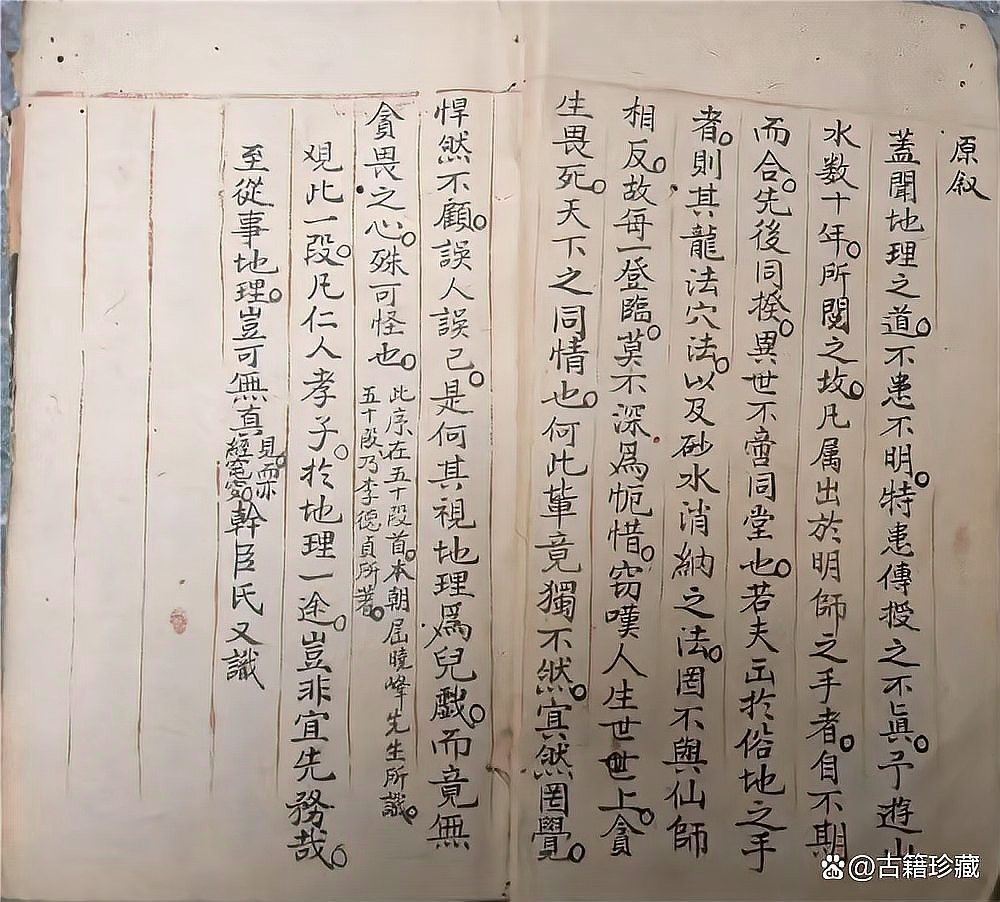 原叙
蓋聞地理之道。不患不明。特患傳授之不眞。予遊山
水数十年。所閱之坟。凡属出於明師之手者。自不期
而合。先後同揆。異世不啻同堂也。若夫出於俗地之手
者。則其龍法穴法。以及砂水消納之法。罔不與仙師
相反。故每一登臨。莫不深為扼惜。窃嘆人生世世上。貪
生畏死。天下之同情也。何此輩竟獨不然。寘然罔覺。
悍然不顧。誤人誤己。是何其視地理為兒戲。而竟無
貪畏之心。殊可怪也。此序在五十段首。本朝屈曉峰先生所識。
五十段乃李德貞所著。
观此一段。凡仁人孝子。於地理一途。豈非宜先務哉。
至從事地理。豈可無真見。而亦
經寃。幹臣氏又識
@古籍珍藏